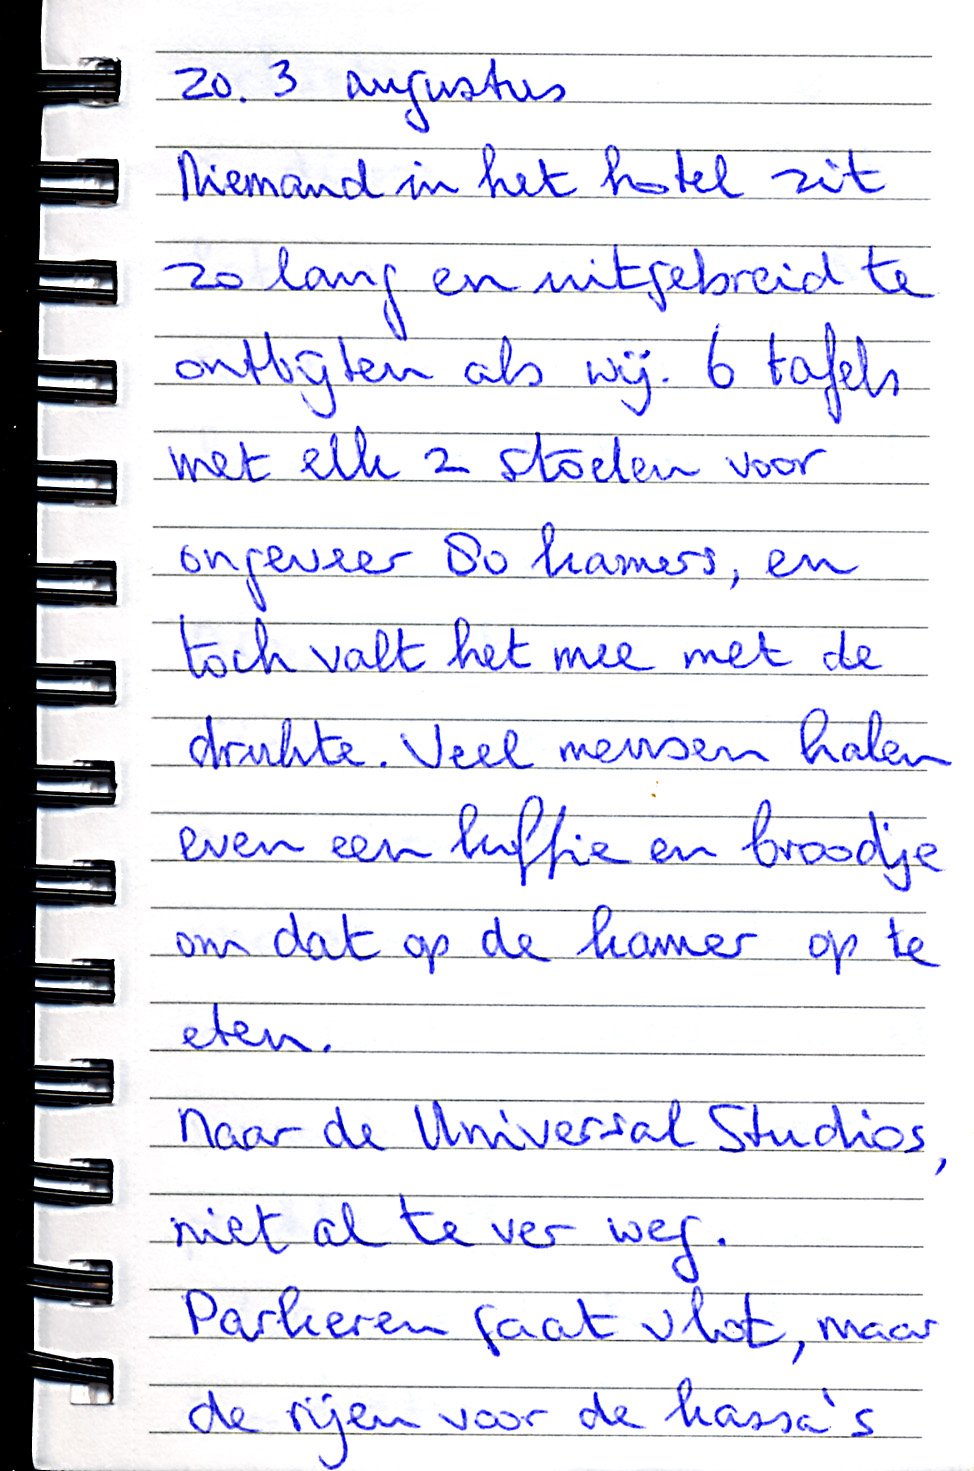 zo. 3 augustus
Niemand in het hotel zit
zo lang en uitgebreid te
ontbijten als wij. 6 tafels
met elk 2 stoelen voor
ongeveer 80 kamers, en
toch valt het mee met de
drukte. Veel mensen halen
even een koffie en broodje
om dat op de kamer op te
eten.
Naar de Universal Studios,
niet al te ver weg.
Parkeren gaat vlot, maar
de rijen voor de kassa's